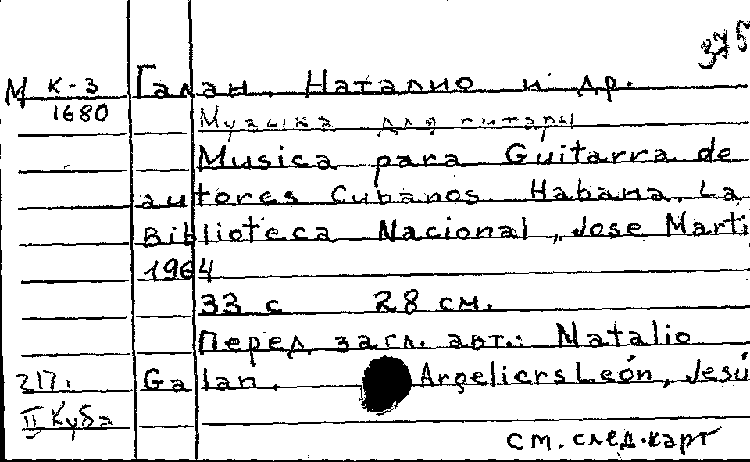 375
М К-3 Галан, Наталио и др.
1680 Музыка для гитары
Musica para Guitarra de
autores Cubanos Habana, La
Biblioteca Nacional „Jose Marti
1964
33 с 28 см.
Перед загл. авт.: Natalio
217. Galan. Argeliers León, Jesú
II Куба
см. след. карт